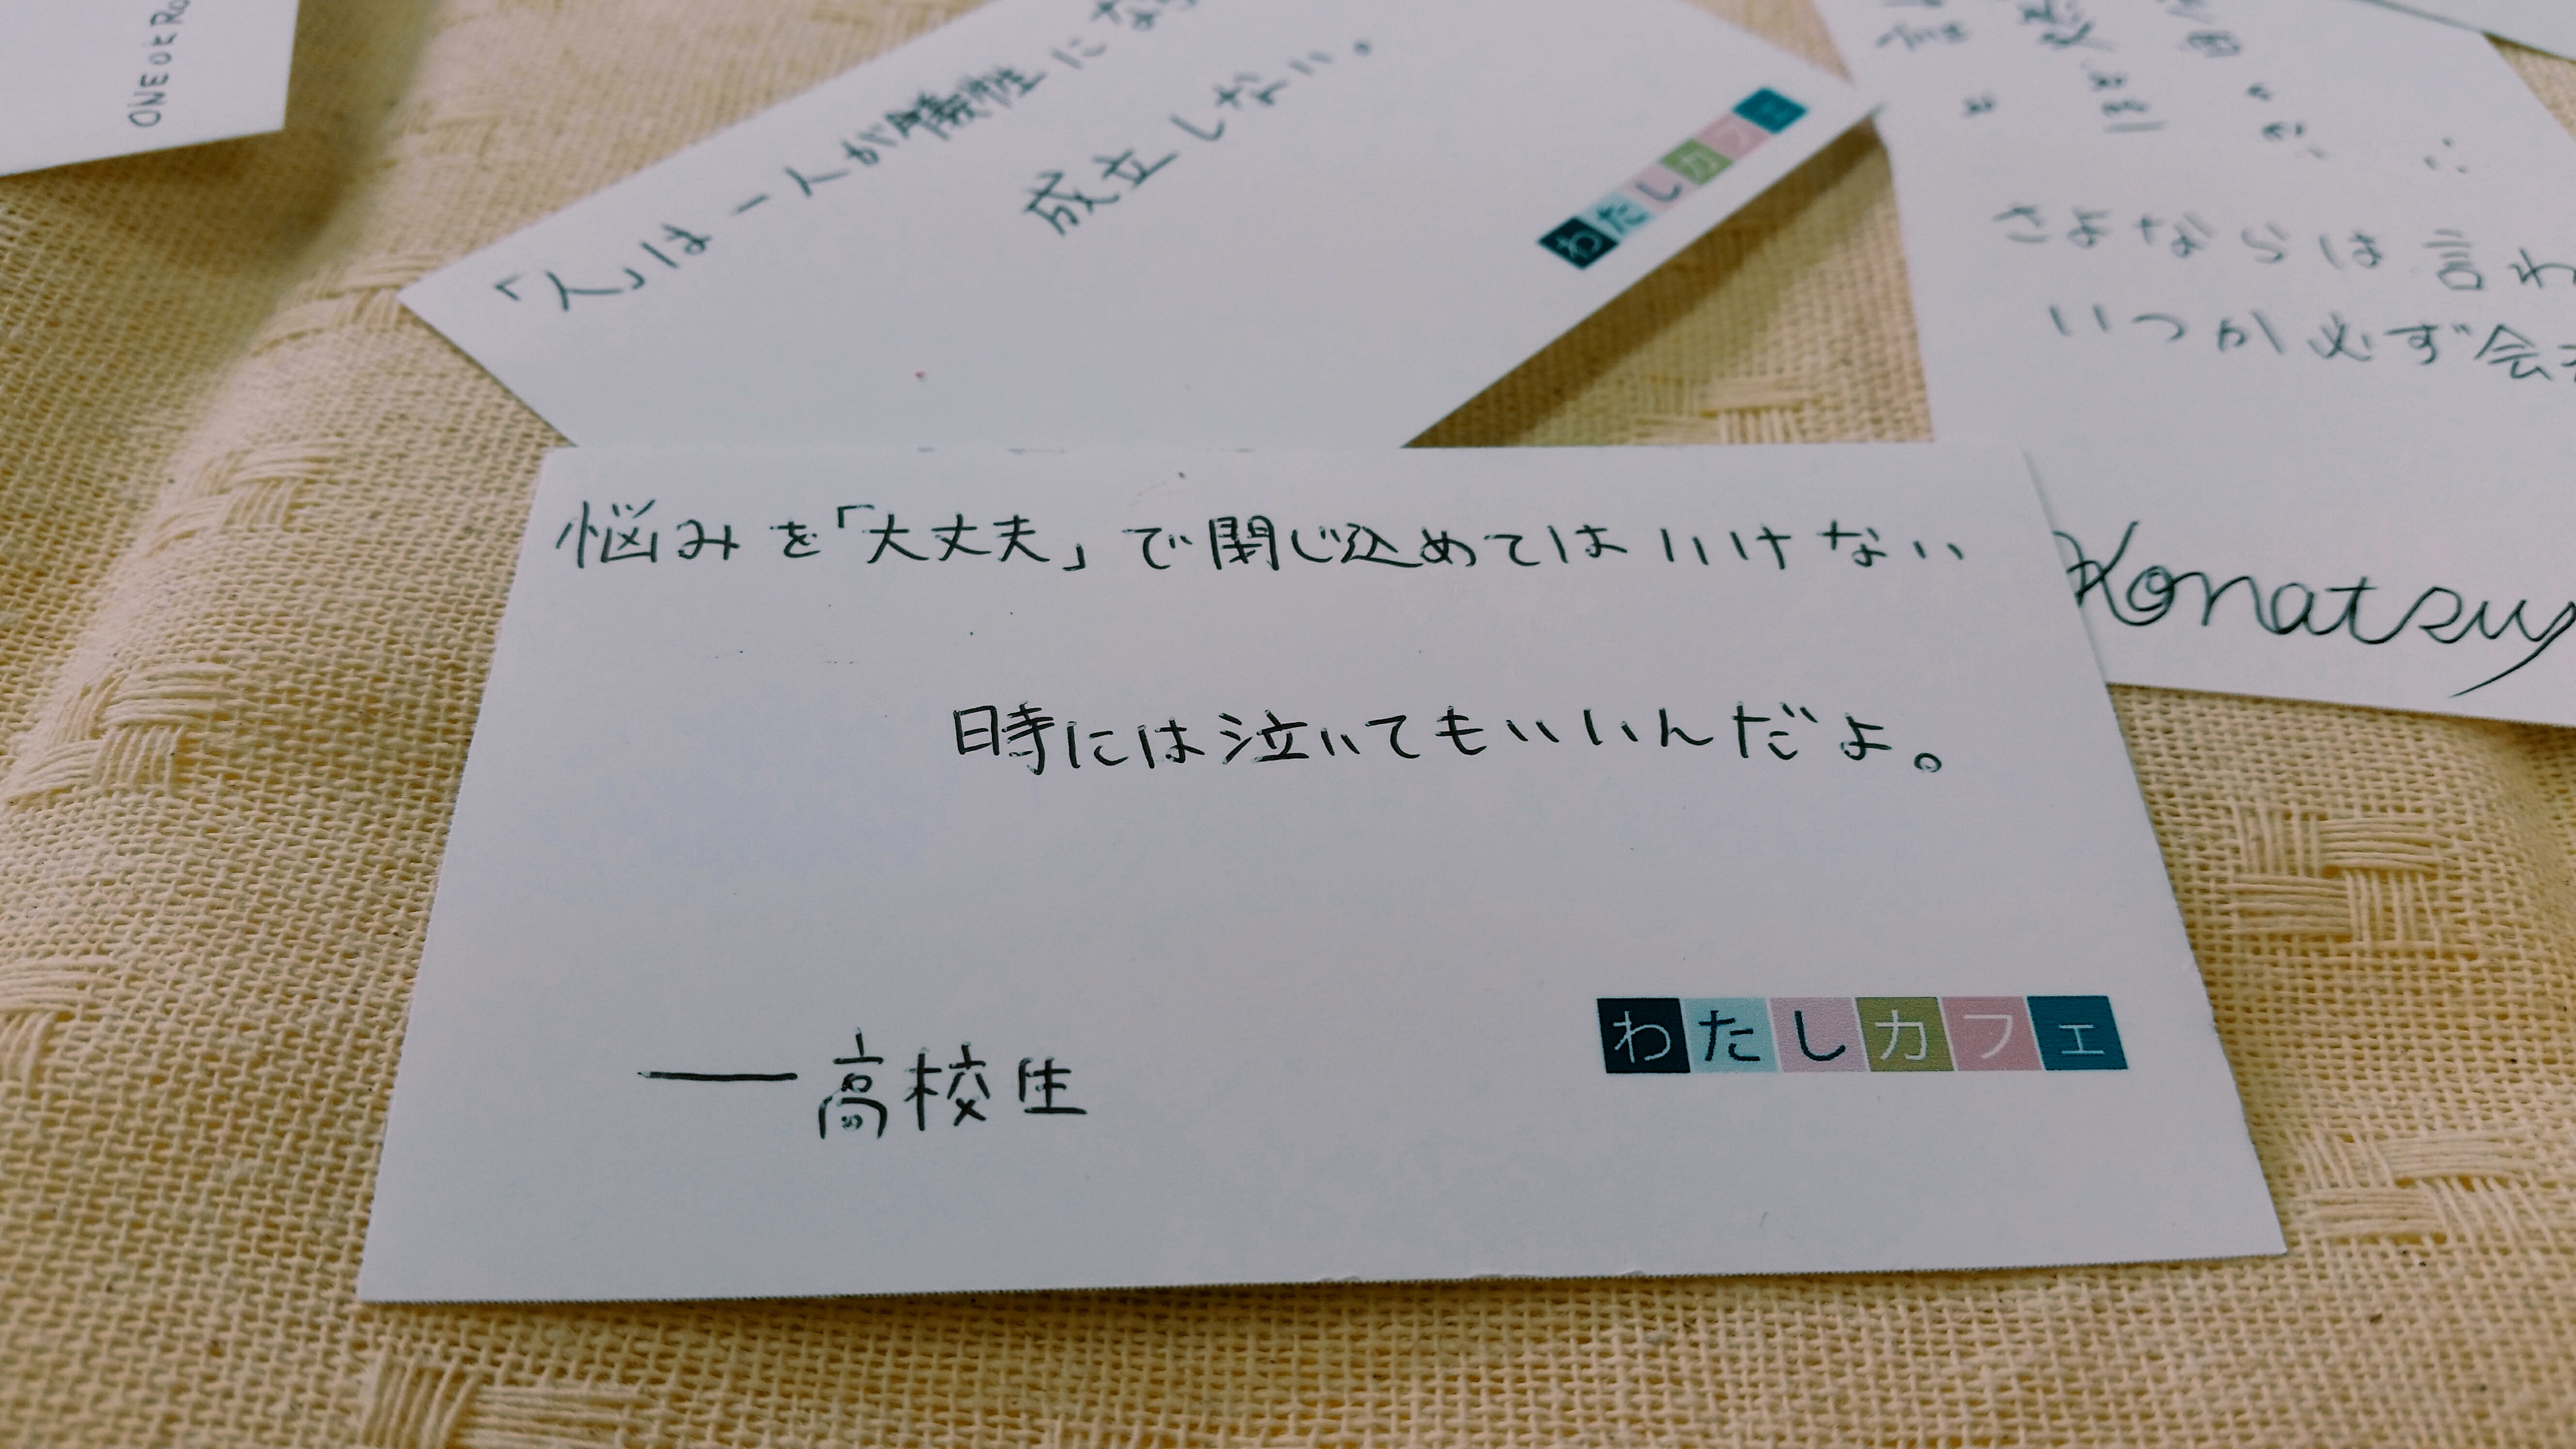 ONE OK RO
「人」は一人が犠牲にな
成立しない。
わたしカフェ
さよならは言わ
いつか必ず会
Konatsu
悩みを「大丈夫」で閉じ込めてはいけない
時には泣いてもいいんだよ。
―高校生
わたしカフェ